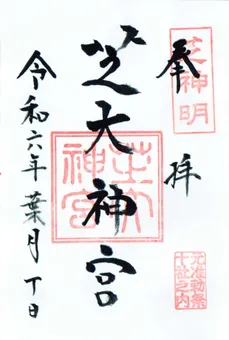 芝神明
奉拝
元准勅祭
十社之内
芝大神宮
芝大
神宮
令和六年葉月 日